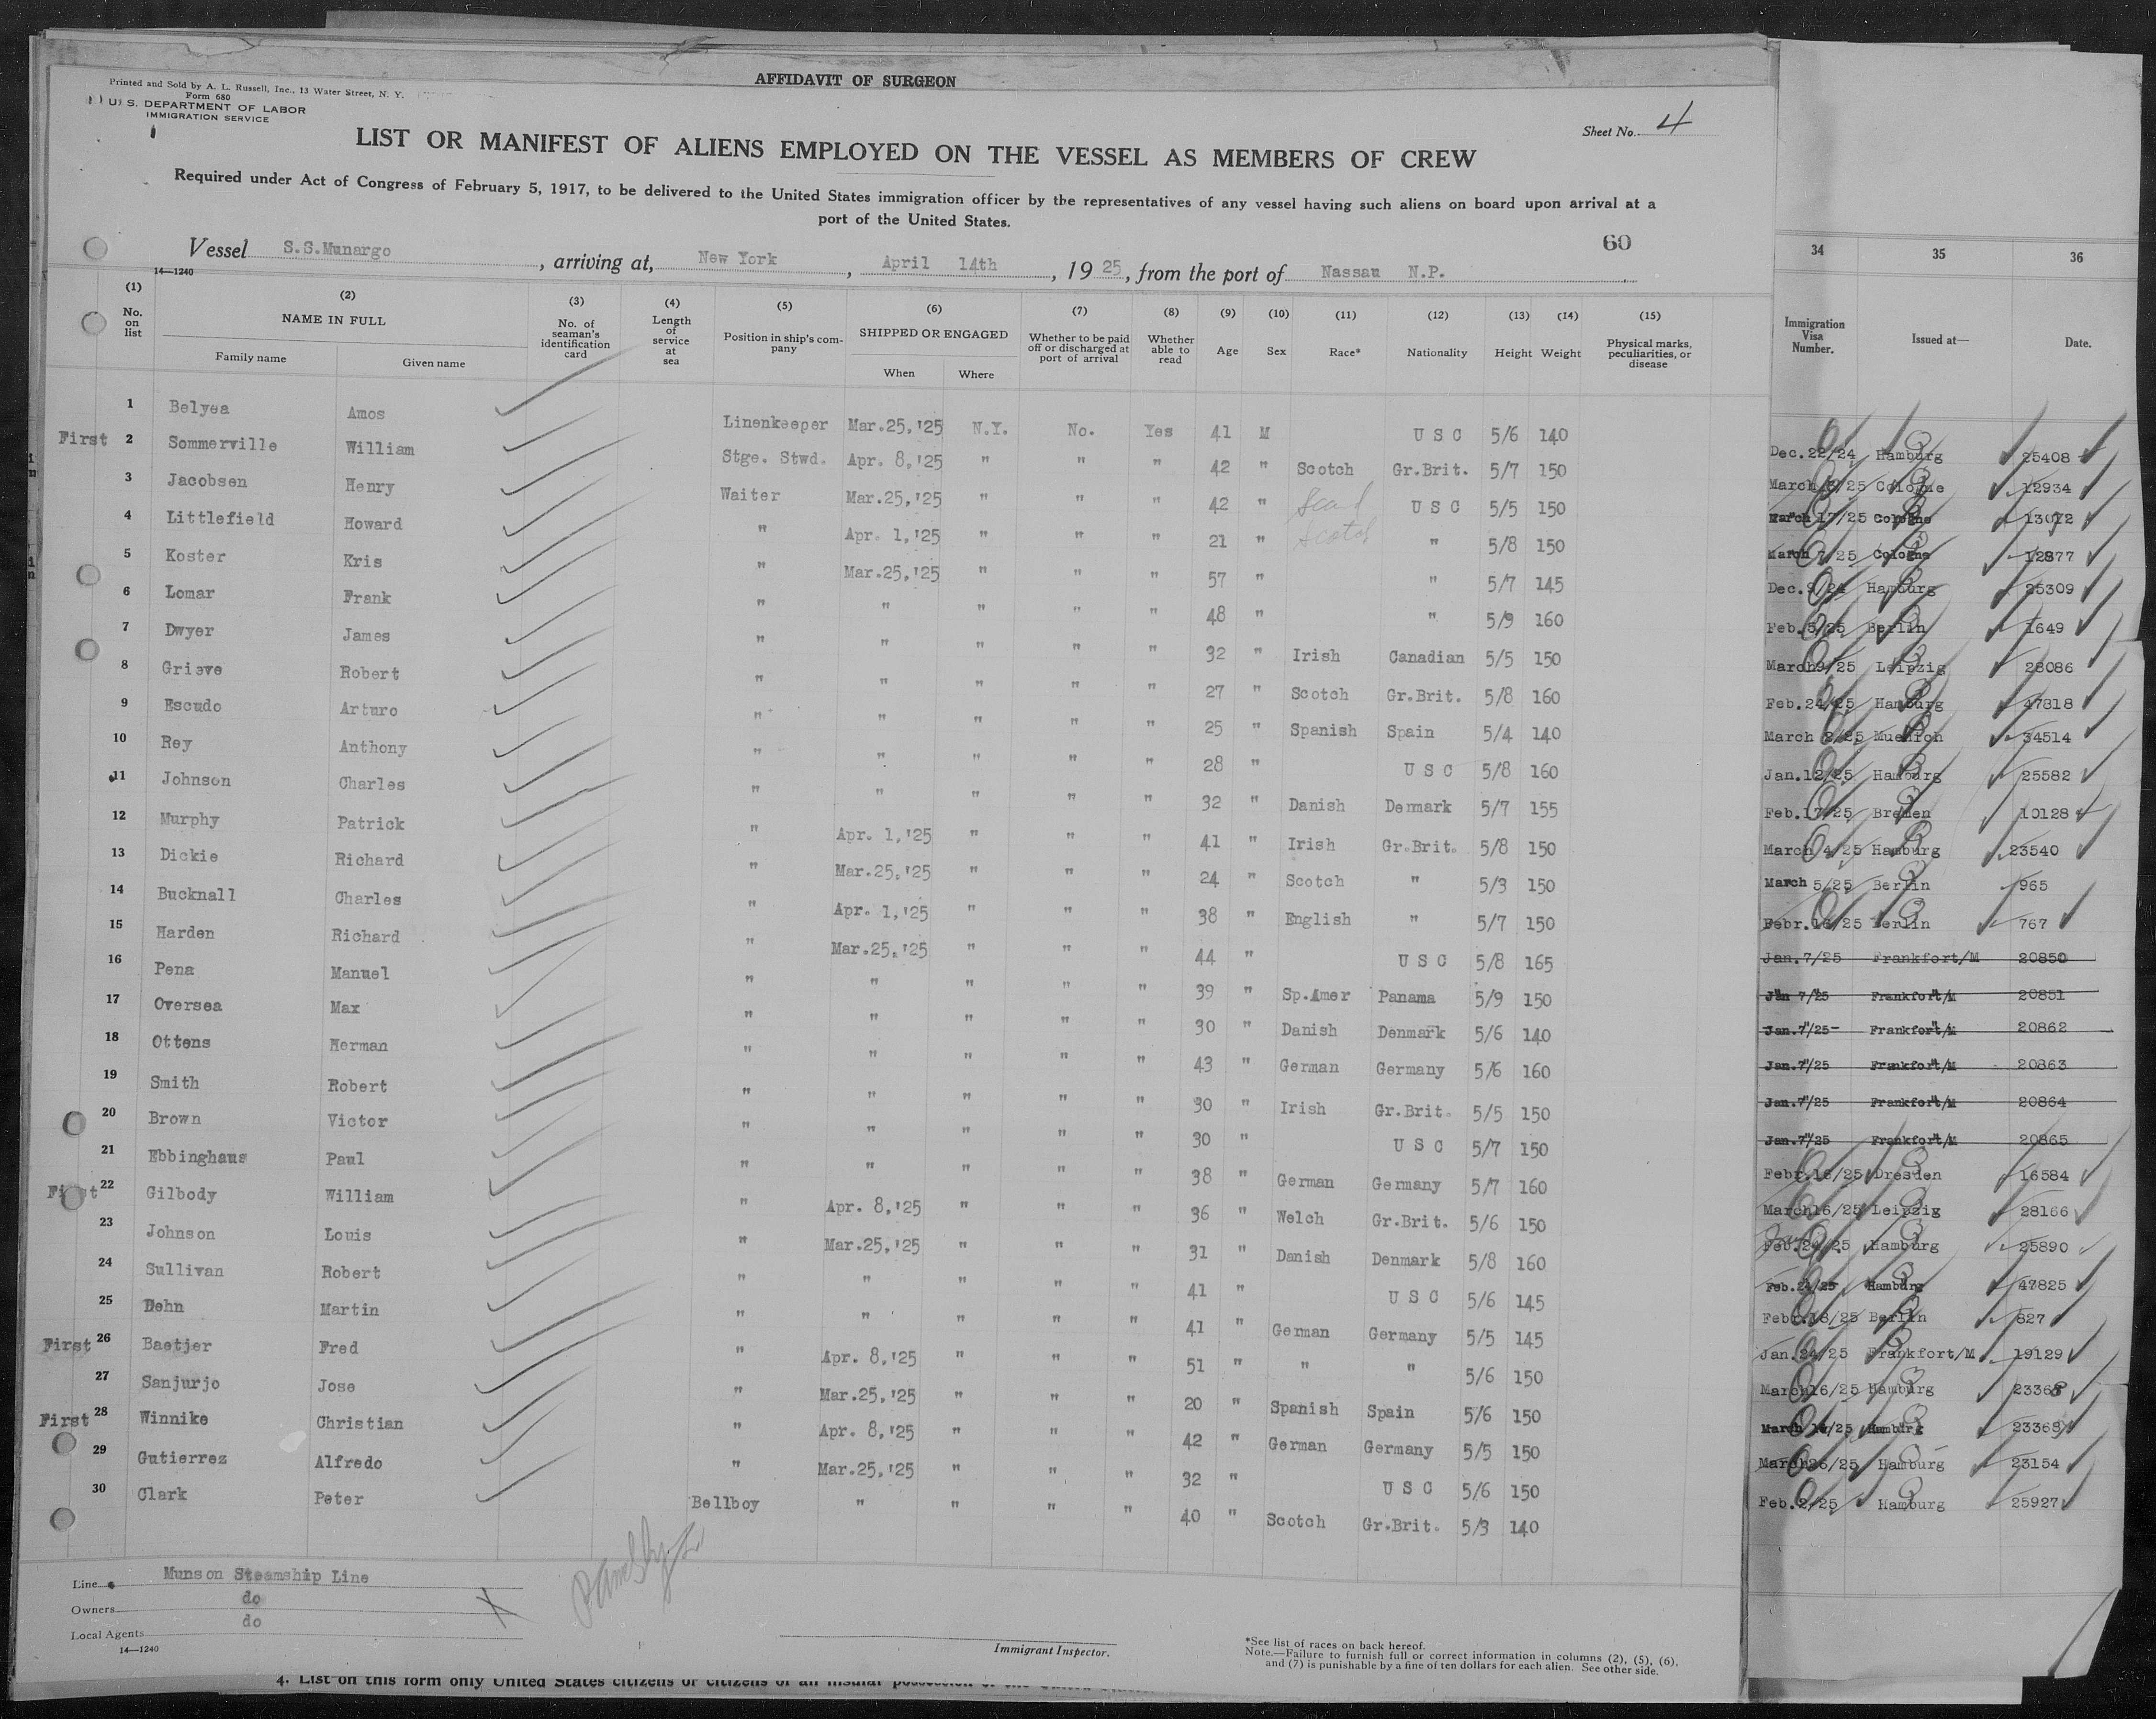 AFFIDAVIT OF SURGEON
Printed and Sold by A. L. Russell, Inc., 13 Water Street, N. Y.
Form 680
U. S. DEPARTMENT OF LABOR
IMMIGRATION SERVICE
Sheet No. 4
LIST OR MANIFEST OF ALIENS EMPLOYED ON THE VESSEL AS MEMBERS OF CREW
Required under Act of Congress of February 5, 1917, to be delivered to the United States immigration officer by the representatives of any vessel having such aliens on board upon arrival at a
port of the United States.
60
Vessel S.S.Munargo, arriving at, New York, April 14th, 1925, from the port of Nassau N.P.
14—1240
(1) (2) (3) (4) (5) (6) (7) (8) (9) (10) (11) (12) (13) (14) (15)
No. on list NAME IN FULL Family name Given name No. of seaman's identification card Length of service at sea Position in ship's company SHIPPED OR ENGAGED When Where Whether to be paid off or discharged at port of arrival Whether able to read Age Sex Race* Nationality Height Weight Physical marks, peculiarities, or disease
1 Belyea Amos Linenkeeper Mar.25,'25 N.Y. No. Yes 41 M U S C 5/6 140
First 2 Sommerville William Stge. Stwd. Apr. 8,'25 " " " 42 " Scotch Gr.Brit. 5/7 150
3 Jacobsen Henry Waiter Mar.25,'25 " " " 42 " Scand U S C 5/5 150
4 Littlefield Howard " Apr. 1,'25 " " " 21 " Scotch " 5/8 150
5 Koster Kris " Mar.25,'25 " " " 57 " " 5/7 145
6 Lomar Frank " " " " " 48 " " 5/9 160
7 Dwyer James " " " " " 32 " Irish Canadian 5/5 150
8 Grieve Robert " " " " " 27 " Scotch Gr.Brit. 5/8 160
9 Escudo Arturo " " " " " 25 " Spanish Spain 5/4 140
10 Rey Anthony " " " " " 28 " U S C 5/8 160
11 Johnson Charles " " " " " 32 " Danish Denmark 5/7 155
12 Murphy Patrick " Apr. 1,'25 " " " 41 " Irish Gr.Brit. 5/8 150
13 Dickie Richard " Mar.25,'25 " " " 24 " Scotch " 5/3 150
14 Bucknall Charles " Apr. 1,'25 " " " 38 " English " 5/7 150
15 Harden Richard " Mar.25,'25 " " " 44 " U S C 5/8 165
16 Pena Manuel " " " " " 39 " Sp.Amer Panama 5/9 150
17 Oversea Max " " " " " 30 " Danish Denmark 5/6 140
18 Ottens Herman " " " " " 43 " German Germany 5/6 160
19 Smith Robert " " " " " 30 " Irish Gr.Brit. 5/5 150
20 Brown Victor " " " " " 30 " U S C 5/7 150
21 Ebbinghaus Paul " " " " " 38 " German Germany 5/7 160
First 22 Gilbody William " Apr. 8,'25 " " " 36 " Welch Gr.Brit. 5/6 150
23 Johnson Louis " Mar.25,'25 " " " 31 " Danish Denmark 5/8 160
24 Sullivan Robert " " " " " 41 " U S C 5/6 145
25 Dehn Martin " " " " " 41 " German Germany 5/5 145
First 26 Baetjer Fred " Apr. 8,'25 " " " 51 " " " 5/6 150
27 Sanjurjo Jose " Mar.25,'25 " " " 20 " Spanish Spain 5/6 150
First 28 Winnike Christian " Apr. 8,'25 " " " 42 " German Germany 5/5 150
29 Gutierrez Alfredo " Mar.25,'25 " " " 32 " U S C 5/6 150
30 Clark Peter Bellboy " " " " 40 " Scotch Gr.Brit. 5/3 140
Line Munson Steamship Line
Owners do
Local Agents do
14—1240
Immigrant Inspector.
*See list of races on back hereof.
Note.—Failure to furnish full or correct information in columns (2), (5), (6),
and (7) is punishable by a fine of ten dollars for each alien. See other side.
4. List on this form only United States citizens or citizens of an insular possession of the United
34 35 36
Immigration Visa Number. Issued at— Date.
Dec.22/24 Hamburg 25408
March 6/25 Cologne 12934
March 17/25 Cologne 13072
March 7/25 Cologne 12877
Dec.9/24 Hamburg 25309
Feb.5/25 Berlin 1649
March9/25 Leipzig 28086
Feb.24/25 Hamburg 47818
March 2/25 Muenich 34514
Jan.12/25 Hamburg 25582
Feb.17/25 Bremen 10128
March 4/25 Hamburg 23540
March 5/25 Berlin 965
Febr.16/25 Berlin 767
Jan.7/25 Frankfort/M 20850
Jan 7/25 Frankfort/M 20851
Jan.7/25 Frankfort/M 20862
Jan.7/25 Frankfort/M 20863
Jan.7/25 Frankfort/M 20864
Jan.7/25 Frankfort/M 20865
Febr.16/25 Dresden 16584
March16/25 Leipzig 28166
Feb.24/25 Hamburg 25890
Feb.24/25 Hamburg 47825
Febr.18/25 Berlin 827
Jan.24/25 Frankfort/M 19129
March16/25 Hamburg 23368
March 14/25 Hamburg 23368
March26/25 Hamburg 23154
Feb.2/25 Hamburg 25927